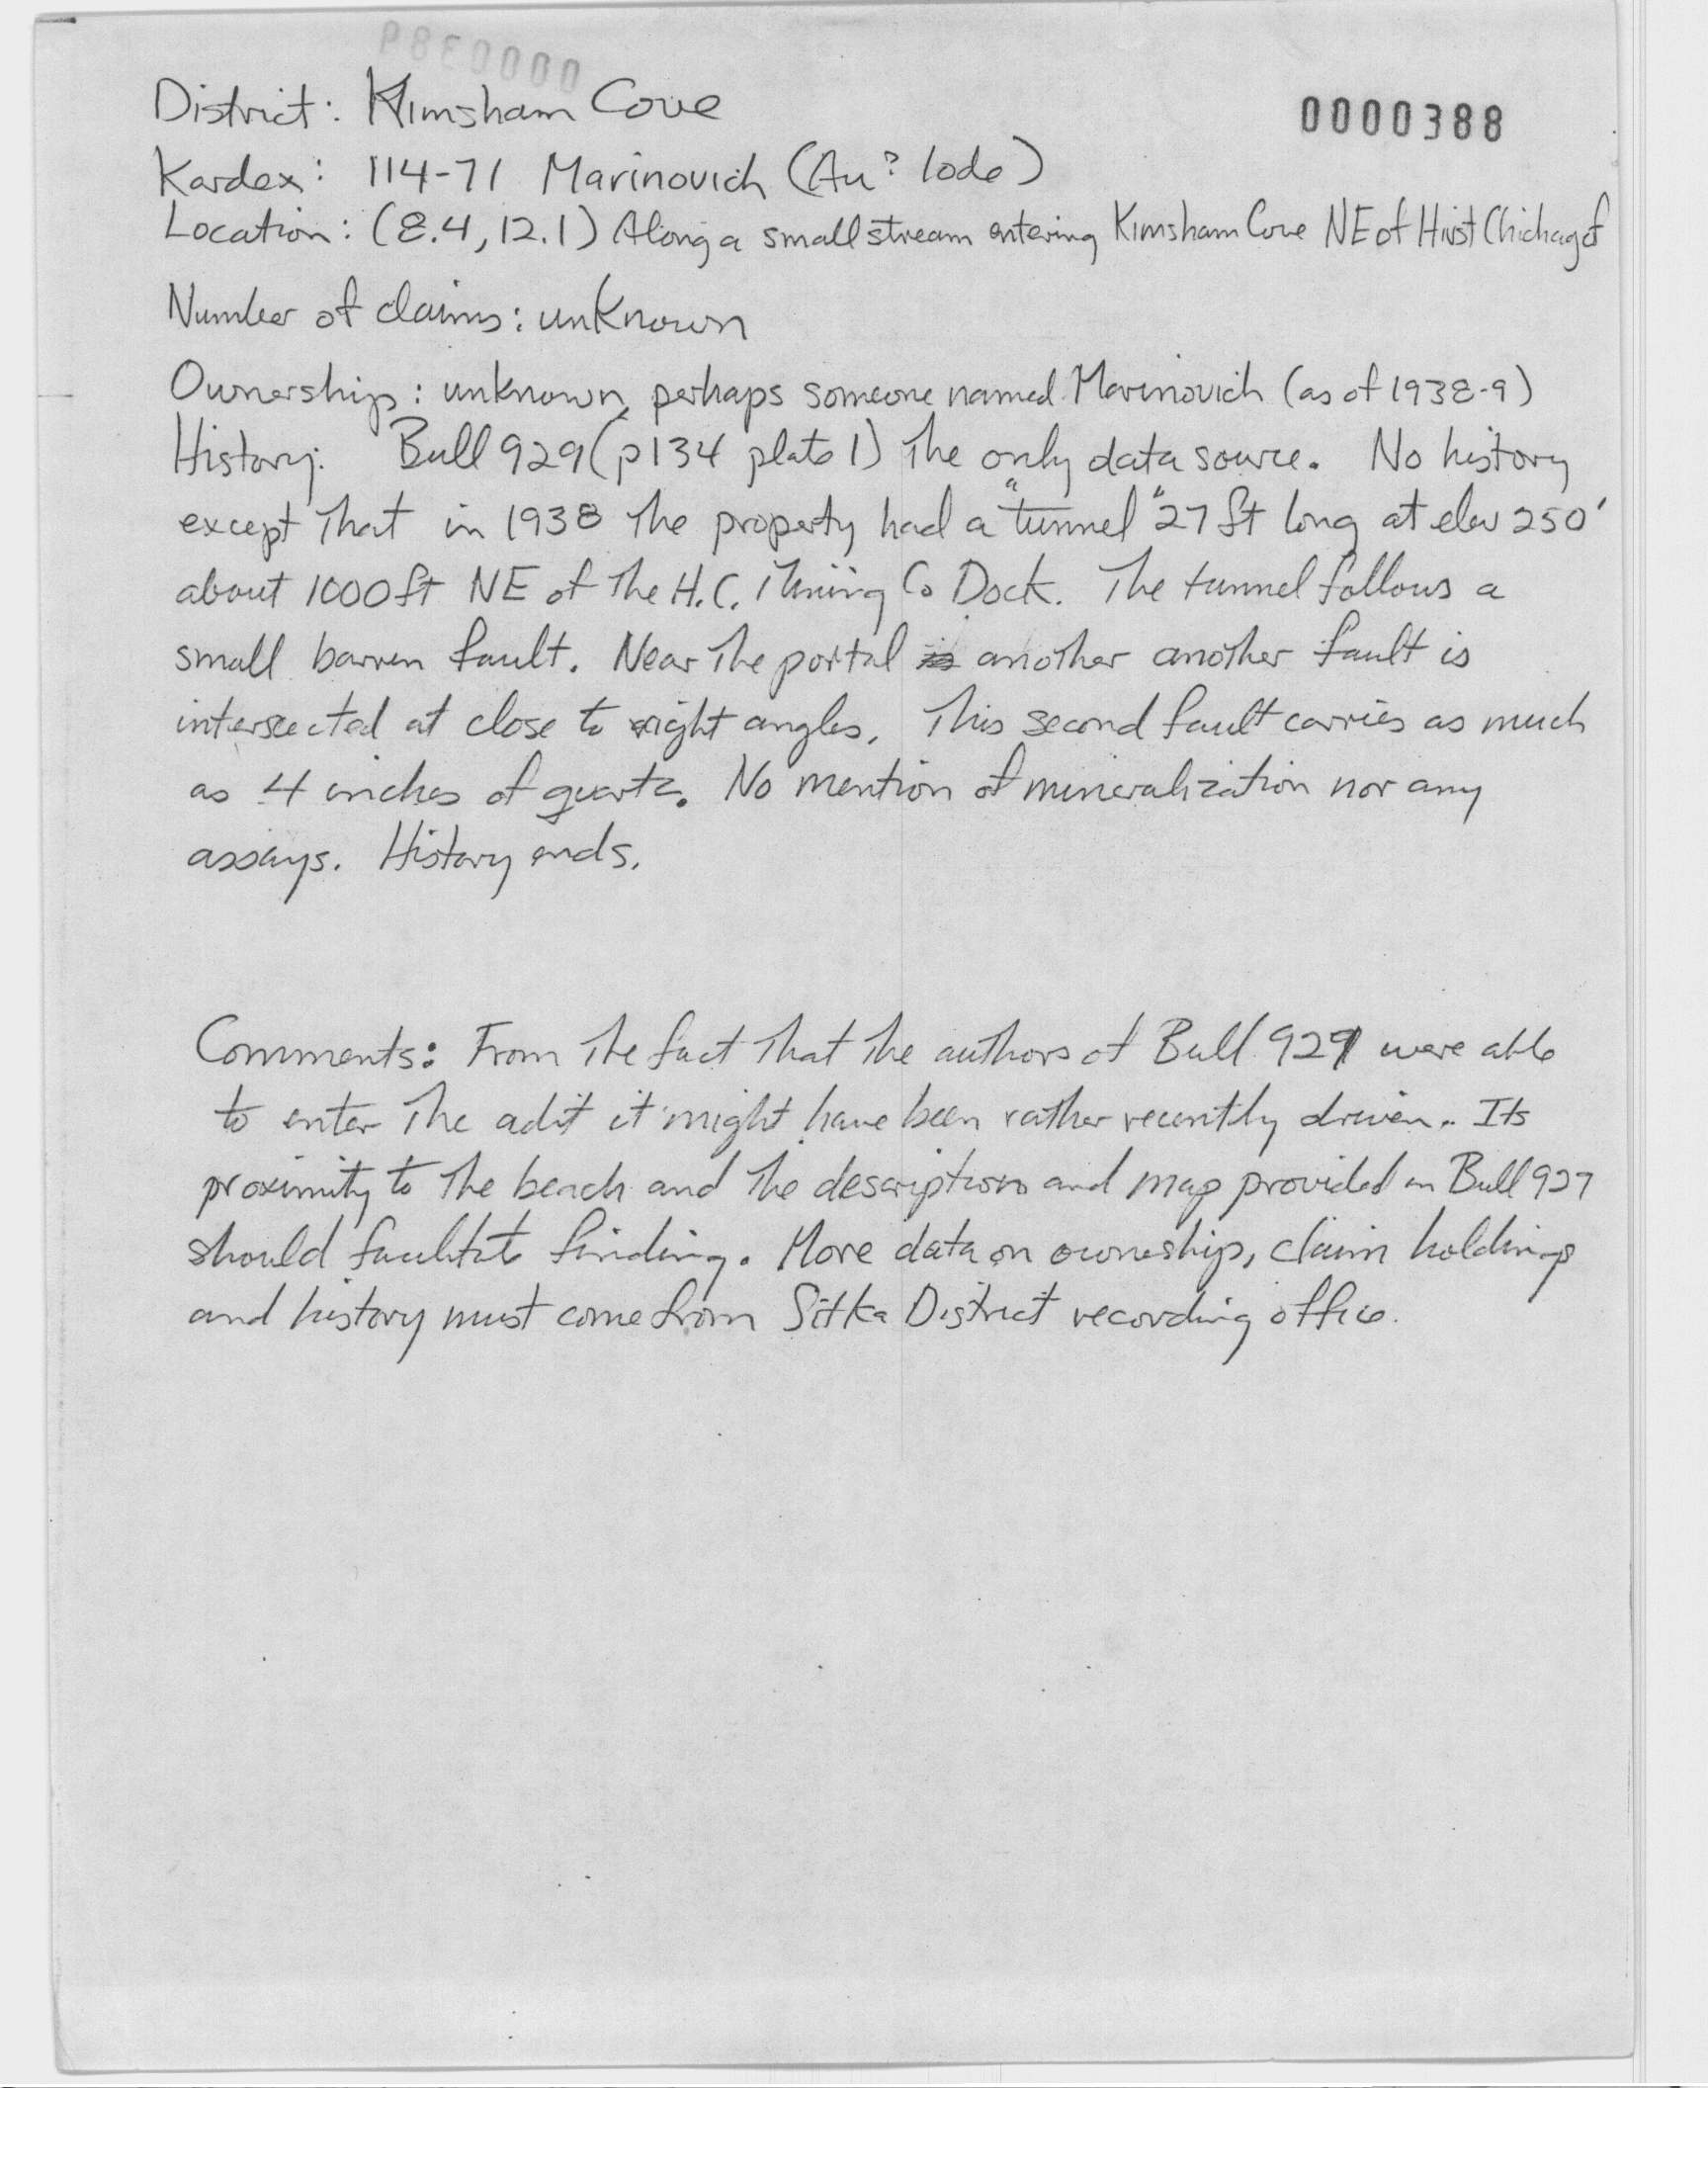 District: Kimsham Cove
0000388
Kardex: 114-71 Marinovich (Au? lode)
Location: (8.4, 12.1) Along a small stream entering Kimsham Cove NE of Hirst Chichagof
Number of claims: unknown
Ownership: unknown, perhaps someone named Marinovich (as of 1938-9)
History: Bull 929 (p134 plate 1) The only data source. No history
except that in 1938 the property had a "tunnel" 27 ft long at elev 250'
about 1000 ft NE of the H.C. Mining Co Dock. The tunnel follows a
small barren fault. Near the portal is another another fault is
intersected at close to right angles. This second fault carries as much
as 4 inches of quartz. No mention of mineralization nor any
assays. History ends.
Comments: From the fact that the authors of Bull 929 were able
to enter the adit it might have been rather recently driven. Its
proximity to the beach and the description and map provided in Bull 929
should facilitate finding. More data on owneship, claim holdings
and history must come from Sitka District recording office.